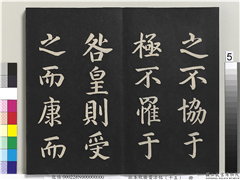 之不協于
極不罹于
咎皇則受
之而康而
5